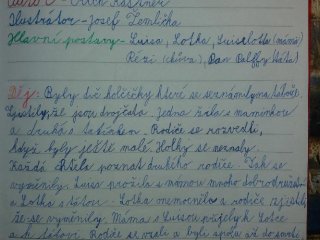 Erich Kästner
Ilustrátor - Josef Zemlička
Hlavní postavy - Luisa, Lotka, Luiselotta (máma)
Rézi (kůva), Pan Palffy (táta)
Děj: Byly dvě holčičky které se seznámily na táboře.
Zjistily, že jsou dvojčata. Jedna žila s maminkou
a druhá s tatínkem. Rodiče se rozvedli,
když byly ještě malé. Holky se neznaly.
Každá chtěla poznat druhého rodiče. Tak se
vyměnily. Luisa prožila s mámou mnoho dobrodružství
a Lotka s tátou. Lotka onemocněla a rodiče zjistili,
že se vyměnily. Máma s Luisou přijely k Lotce
a k tátovi. Rodiče se vzali a byli spolu až do smrti.